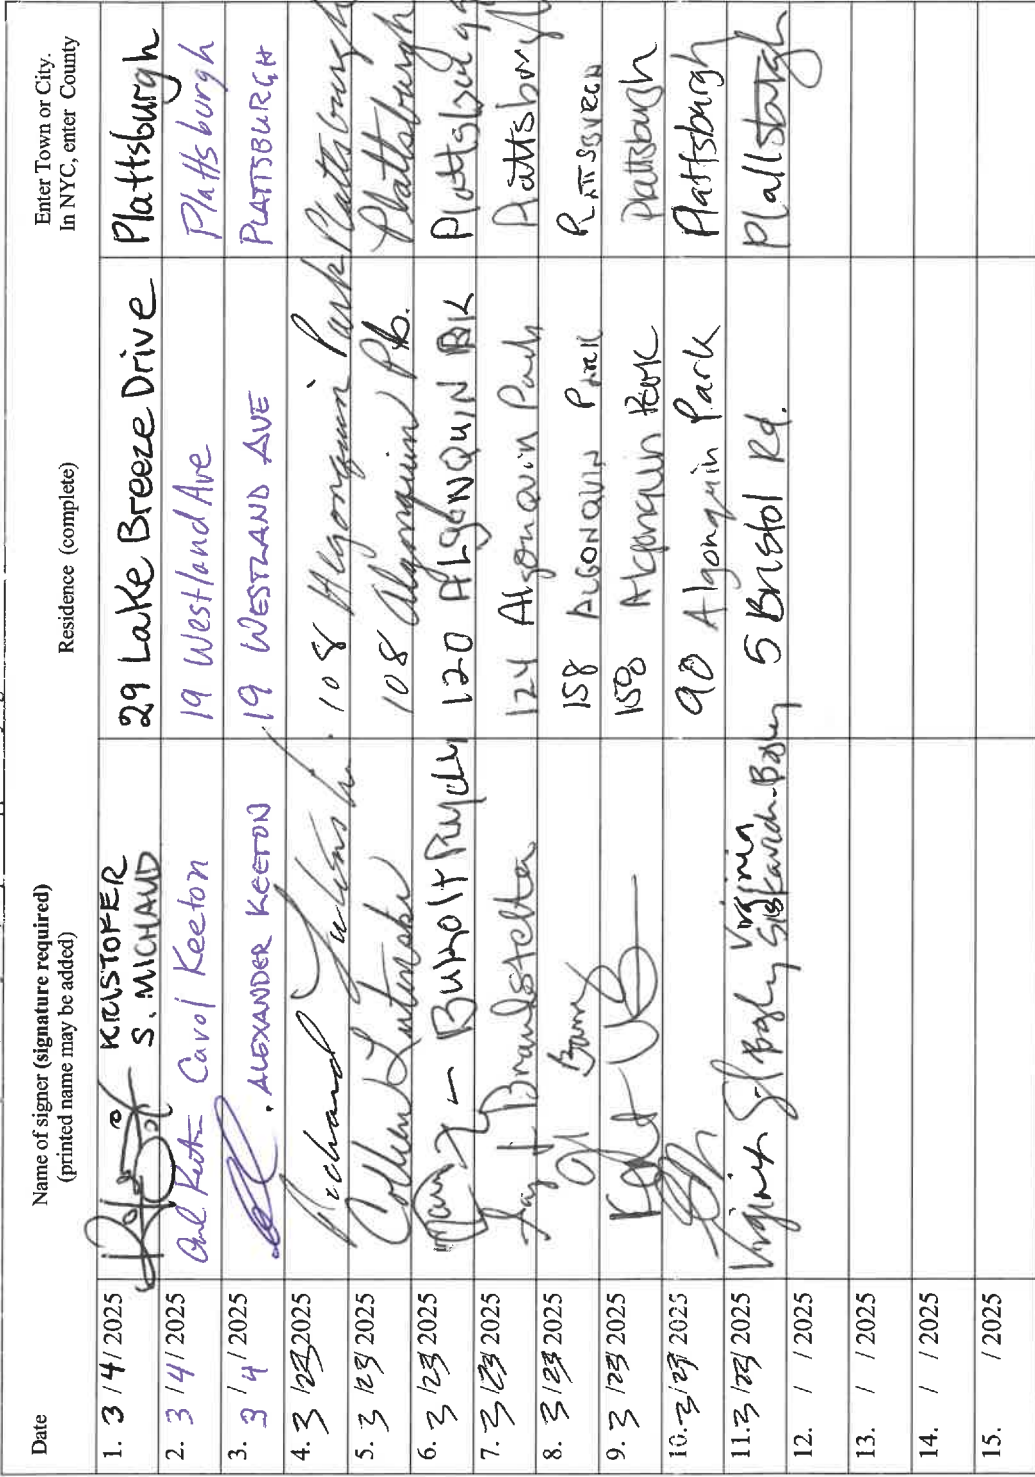 Date Name of signer (signature required) Residence (complete) Enter Town or City.
(printed name may be added) In NYC, enter County
1. 3 / 4 / 2025 KRISTOFER S. MICHAUD 29 Lake Breeze Drive Plattsburgh
2. 3 / 4 / 2025 Carol Keeton 19 Westland Ave Plattsburgh
3. 3 / 4 / 2025 ALEXANDER KEETON 19 WESTLAND AVE PLATTSBURGH
4. 3 / 23 / 2025 Richard 108 Algonquin Park Plattsburgh
5. 3 / 23 / 2025 Colleen 108 Algonquin Pk. Plattsburgh
6. 3 / 23 / 2025 120 ALGONQUIN PK Plattsburgh
7. 3 / 23 / 2025 Brandstetter 124 Algonquin Park Plattsburgh
8. 3 / 23 / 2025 158 ALGONQUIN PARK PLATTSBURGH
9. 3 / 23 / 2025 158 Algonquin Park Plattsburgh
10. 3 / 23 / 2025 90 Algonquin Park Plattsburgh
11. 3 / 23 / 2025 Virginia Virginia 5 Bristol Rd. Plattsburgh
12. / / 2025
13. / / 2025
14. / / 2025
15. / 2025